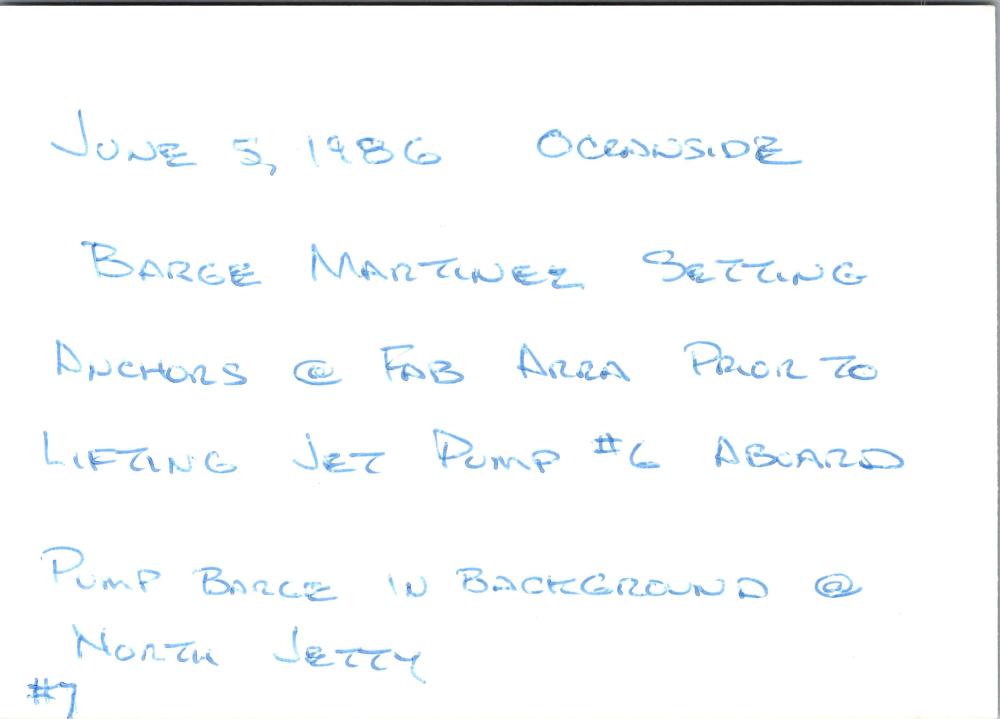 JUNE 5, 1986 OCEANSIDE
BARGE MARTINEZ SETTING
ANCHORS @ FAB AREA PRIOR TO
LIFTING JET PUMP #6 ABOARD
PUMP BARGE IN BACKGROUND @
NORTH JETTY
#7